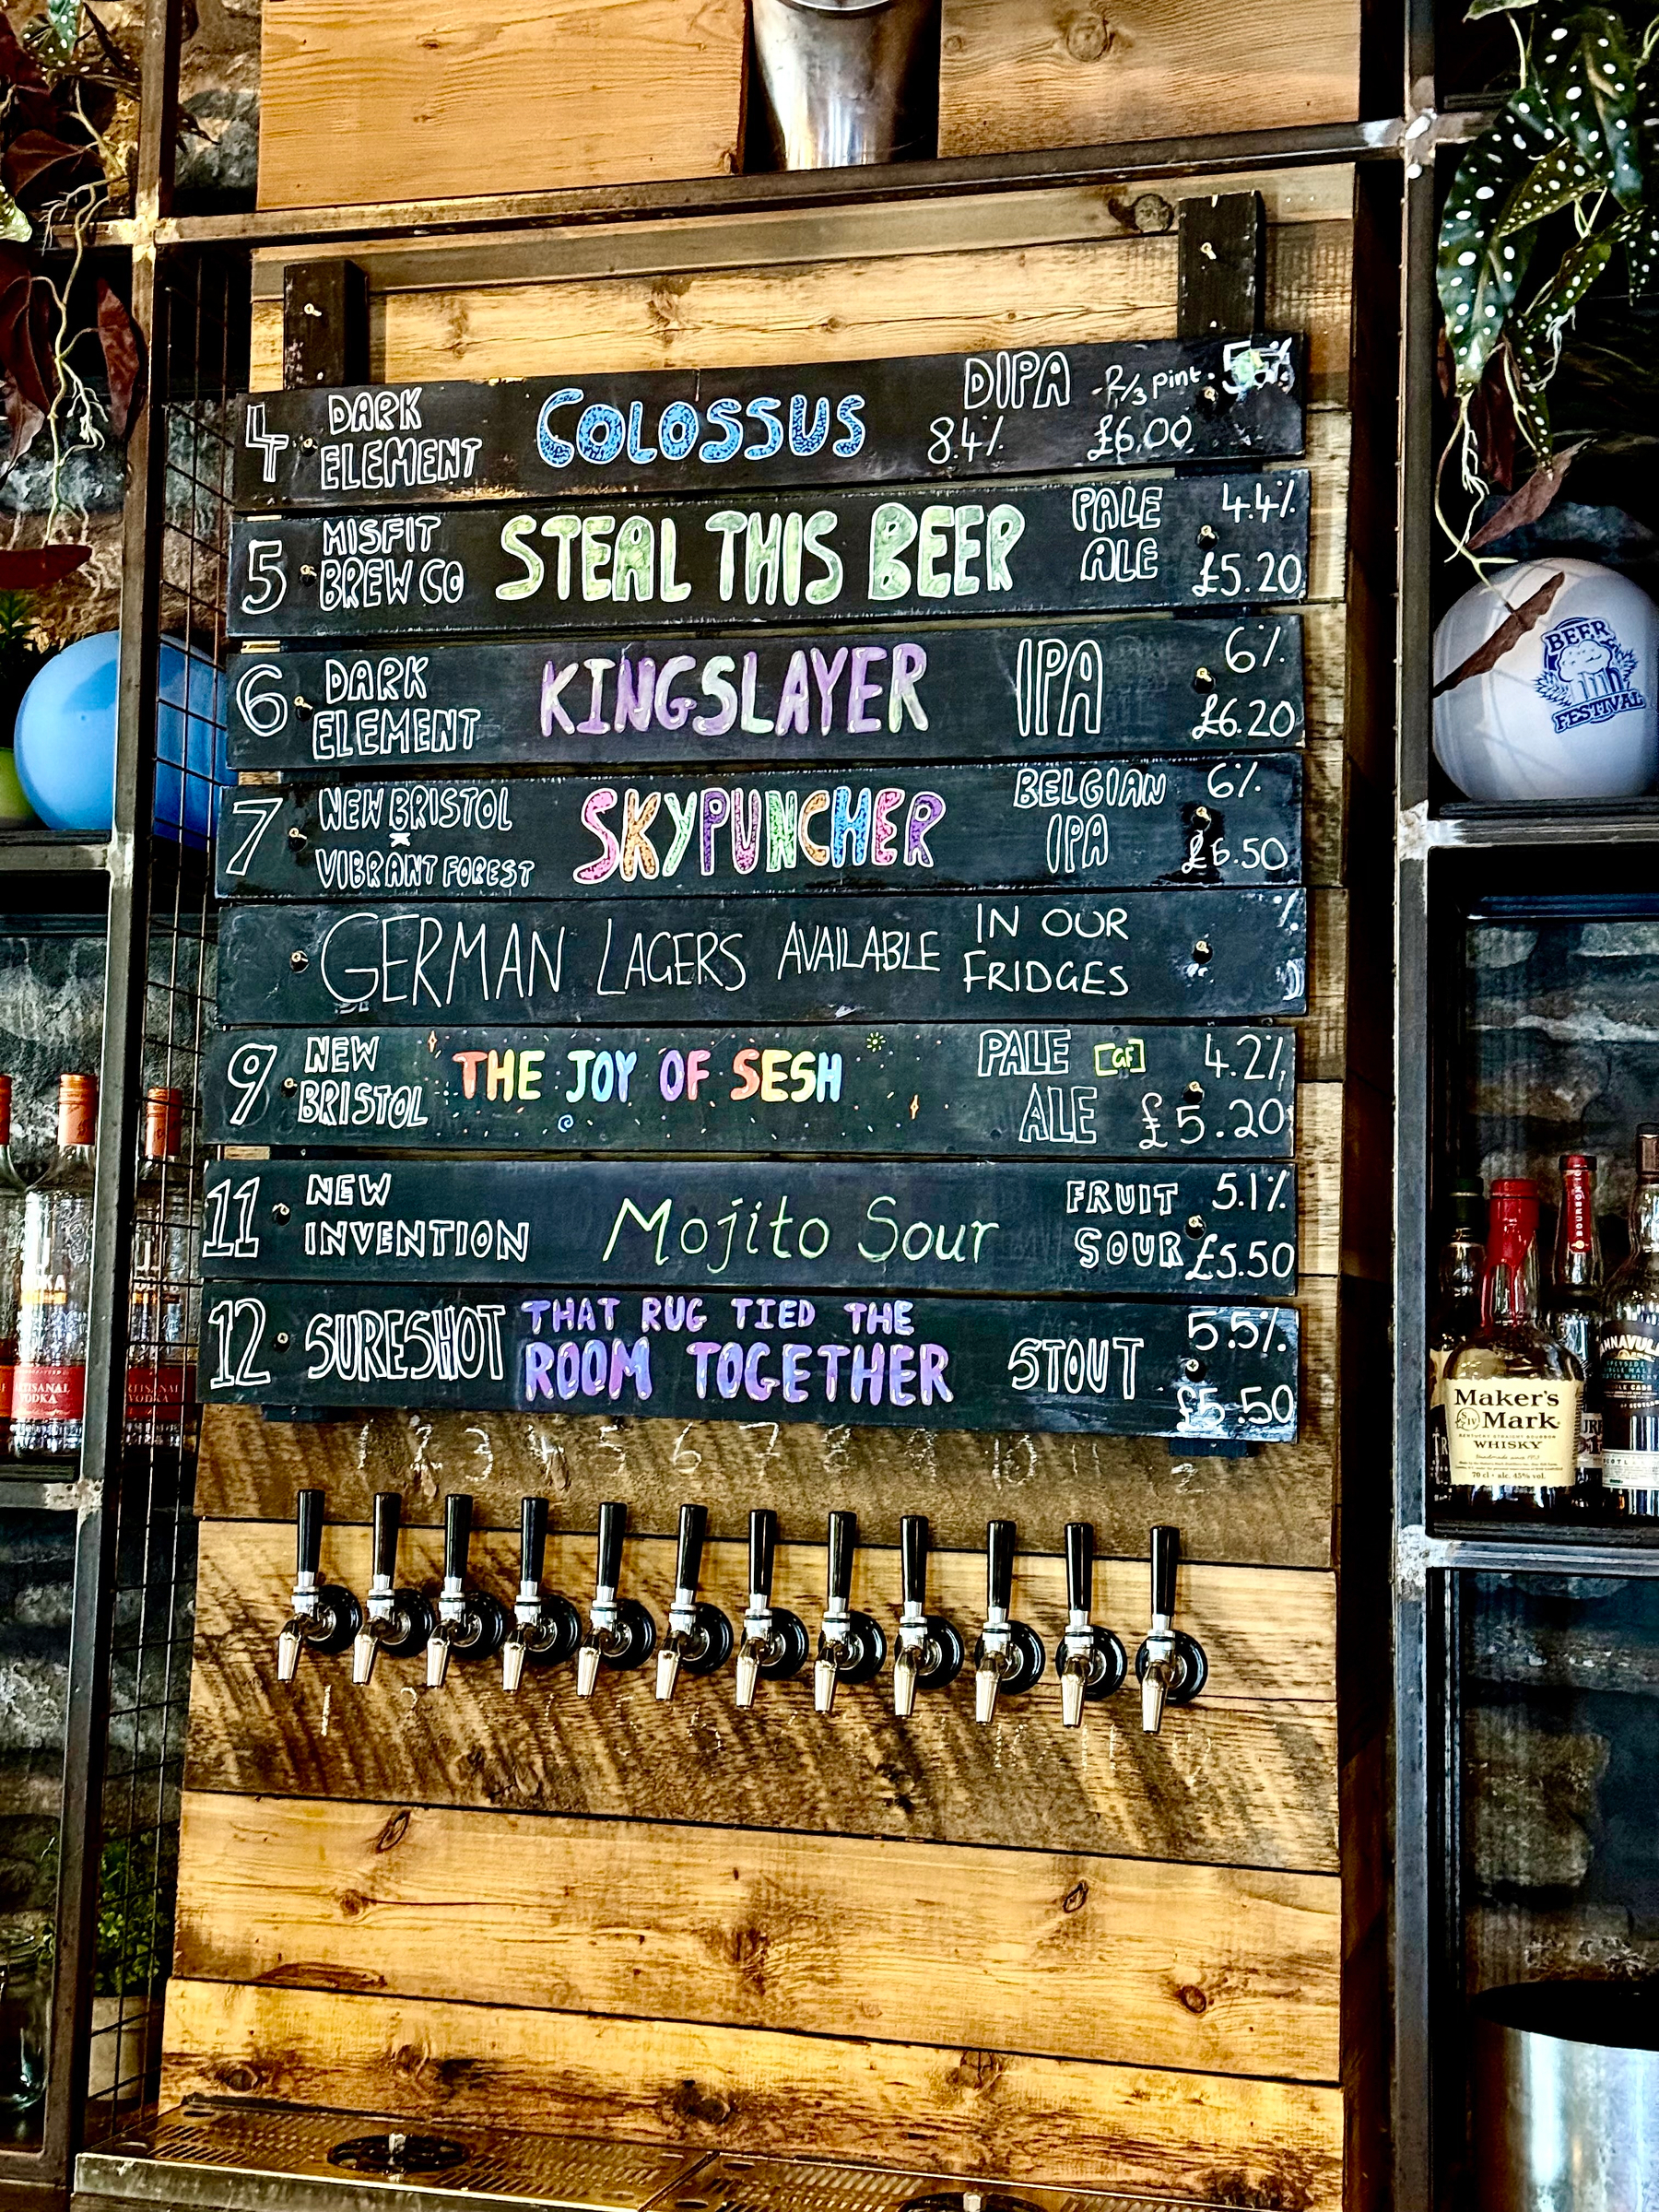 4 DARK ELEMENT COLOSSUS DIPA 8.4% -2/3 pint- £6.00
5 MISFIT BREW CO STEAL THIS BEER PALE ALE 4.4% £5.20
6 DARK ELEMENT KINGSLAYER IPA 6% £6.20
7 NEW BRISTOL x VIBRANT FOREST SKYPUNCHER BELGIAN IPA 6% £6.50
GERMAN LAGERS AVAILABLE IN OUR FRIDGES
9 NEW BRISTOL THE JOY OF SESH PALE ALE [GF] 4.2% £5.20
11 NEW INVENTION Mojito Sour FRUIT SOUR 5.1% £5.50
12 SURESHOT THAT RUG TIED THE ROOM TOGETHER STOUT 5.5% £5.50
1 2 3 4 5 6 7 8 9 10 11 2
BEER
FESTIVAL
ARTISANAL
VODKA
BOURBON
Maker's
SIV Mark
KENTUCKY STRAIGHT BOURBON
WHISKY
70 cl - alc. 45% vol.